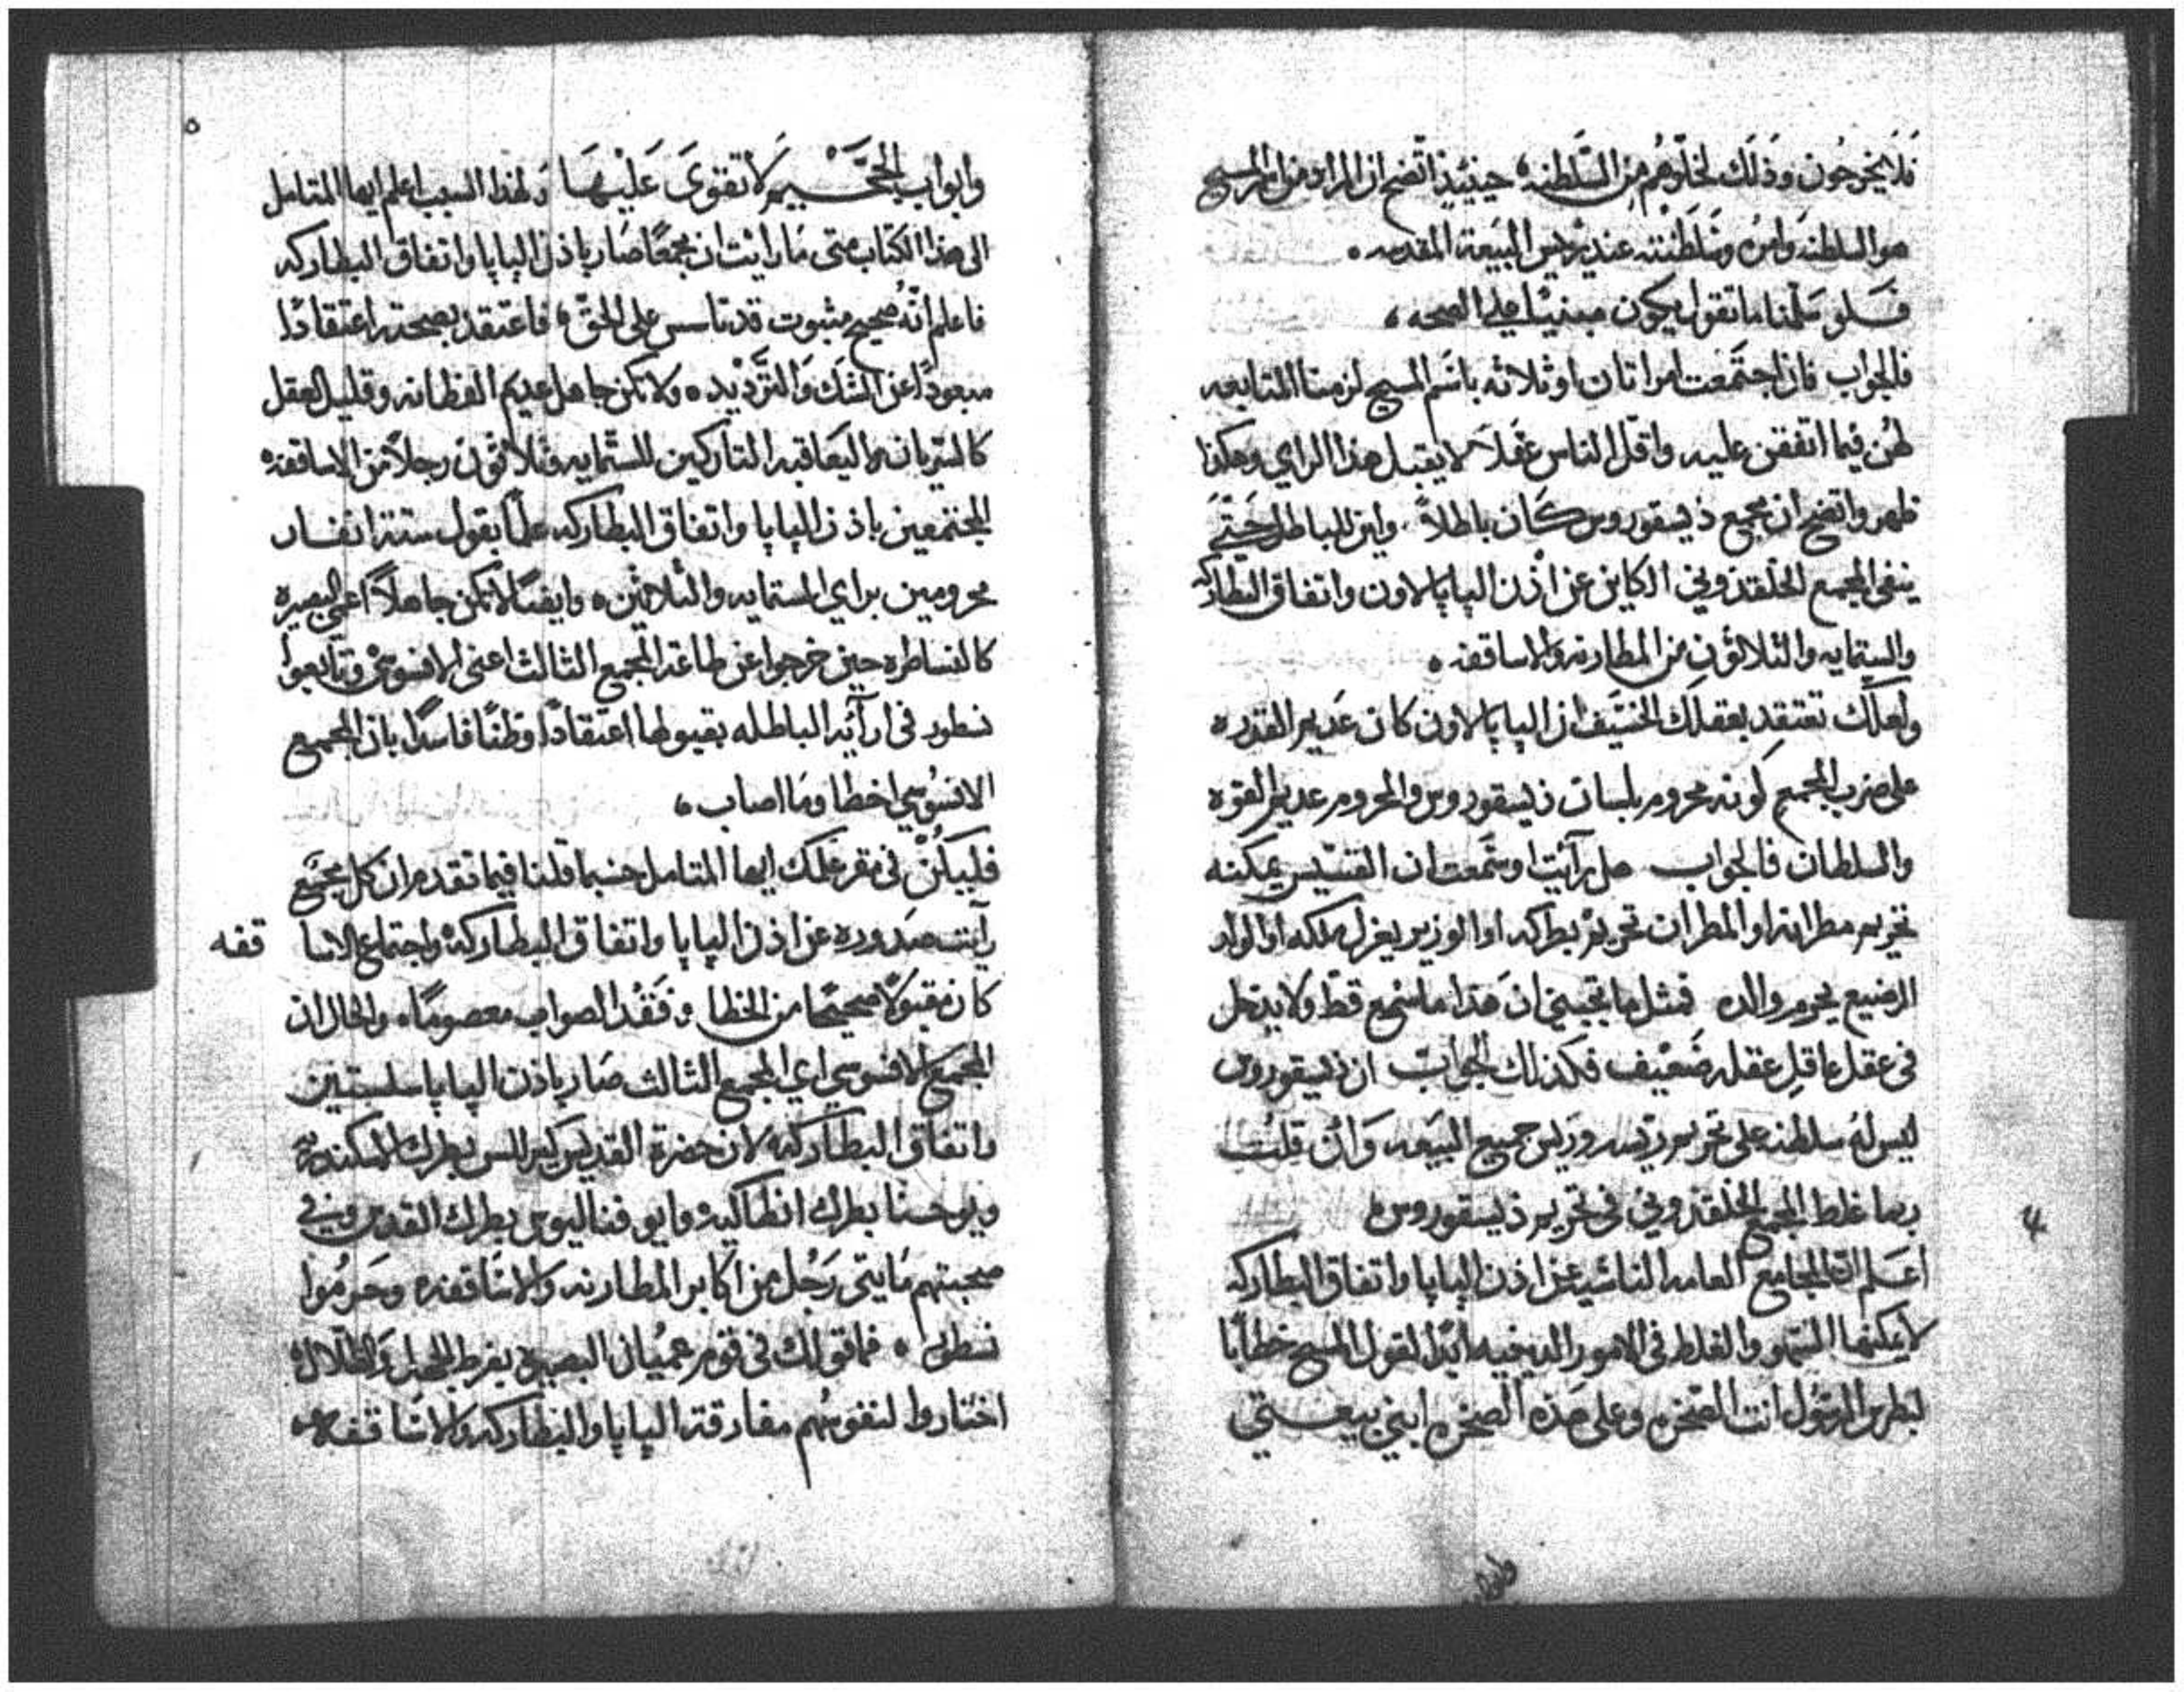 فلا يخرجون وذلك لخلوهم من السلطنه، حينيذٍ اتضح ان المراد من امر المسيح
هو السلطنه وامره وسلطنته عند ريس البيعة المقدسه ٠
فلو سلمنا ما تقول يكون مبنيًا على الصحه ،
فالجواب فان اجتمعت امراتان او ثلاثه باسم المسيح لزمنا المتابعه
لهن فيما اتفقن عليه واقل الناس عقلاً لا يقبل هذا الراي وهكذا
ظهر واتضح ان مجمع ذيسقوروس كان باطلاً ٠ واين للباطل حتى
ينفي المجمع الخلقذوني الكاين عن اذن البابا لاون واتفاق البطاركه
والستمايه والثلاثون من المطارنه والاساقفه ٠
ولعلك تعتقد بعقلك الخسيف ان البابا لاون كان عديم القدره
على ضرب المجمع كونه محروم بلسان ذيسقوروس والمحروم عديم القوه
والسلطان فالجواب هل رآيت او سمعت ان القسيس يمكنه
تحريم مطرانه او المطران تحريم بطركه او الوزير يعزل ملكه او الولد
الرضيع يحرم والده فمثل ما تجيبني ان هذا ما سمع قط ولا يدخل
في عقل عاقل عقله ضعيف فكذلك الجواب ان ذيسقوروس
ليس له سلطنه على تحريم ريسه وريس جميع البيعه وان قلت
ربما غلط المجمع الخلقذوني في تحريم ذيسقوروس ،
اعلم ان المجامع العامه الناشيه عن اذن البابا واتفاق البطاركه
لا يمكنها السهو والغلط في الامور الدينيه ابدًا لقول المسيح خطابًا
لبطرس الرسول انت الصخره وعلى هذه الصخره ابني بيعتي
وابواب الجحيم لا تقوى عليها ولهذا السبب اعلم ايها المتامل
الى هذا الكتاب متى ما رايت ان مجمعًا صار باذن البابا واتفاق البطاركه
فاعلم انه صحيح مثبوت قد تاسس على الحق ، فاعتقد بصحته اعتقادًا
مبعودًا عن الشك والترديد ٠ ولا تكن جاهل عديم الفطانه وقليل العقل
كالسريان اليعاقبه التاركين للستمايه وثلاثون رجلاً من الاساقفه
المجتمعين باذن البابا واتفاق البطاركه عملاً بقول ستة انفار
محرومين براي الستمايه والثلاثين ٠ وايضًا لا تكن جاهلاً اعمى البصيره
كالنساطره حين خرجوا عن طاعة المجمع الثالث اعني الافسوسي وتابعوا
نسطور في ارآئه الباطله بقبولها اعتقادًا وظنًا فاسدًا بان المجمع
الافسوسي اخطا وما اصاب ،
فليكن في مقر عقلك ايها المتامل حسبما قلنا فيما تقدم ان كل مجمع
رآيت صدوره عن اذن البابا واتفاق البطاركه واجتماع الاسا قفه
كان مقبولاً صحيحًا من الخطا وفقد الصواب معصومًا ٠ والحال ان
المجمع الافسوسي اي المجمع الثالث صار باذن البابا سلستين
واتفاق البطاركه لان حضرة القديس كيرللس بطرك الاسكندريه
ويوحنا بطرك انطاكيه وايوفناليوس بطرك القدس وفي
صحبتهم مايتي رجل من اكابر المطارنه والاساقفه وحرموا
نسطور ٠ فما قولك في قوم عميان البصيره بفرط الجهل والظلال
اختاروا لنفوسهم مفارقة البابا والبطاركه والاساقفه